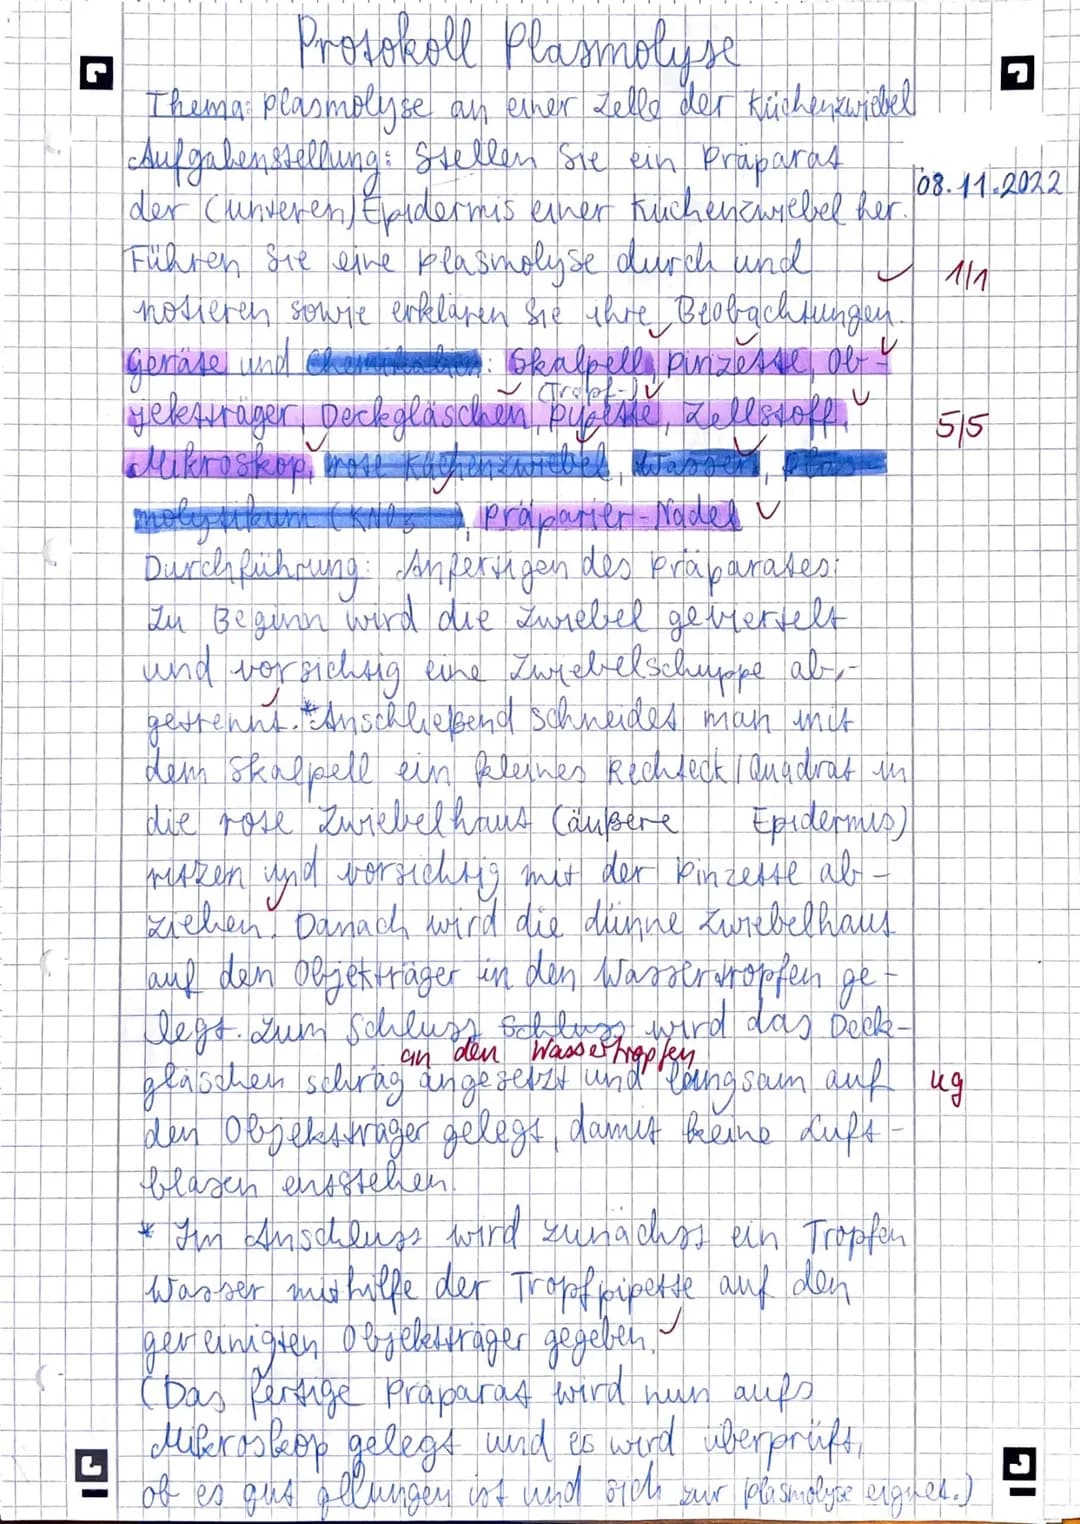 Protokoll Plasmolyse
Thema: Plasmolyse an einer Zelle der Küchenzwiebel
Aufgabenstellung: Stellen Sie ein Präparat
08.11.2022
der (unteren) Epidermis einer Küchenzwiebel her.
Führen Sie eine Plasmolyse durch und
1/1
notieren sowie erklären Sie ihre Beobachtungen.
Geräte und Chemikalien: Skalpell, Pinzette, Ob-
(Tropf-)
jektträger, Deckgläschen, Pipette, Zellstoff,
5/5
Mikroskop, rote Küchenzwiebel, Wasser, Plas-
molytikum (KNO3), Präparier-Nadel
Durchführung: Anfertigen des Präparates:
Zu Beginn wird die Zwiebel geviertelt
und vorsichtig eine Zwiebelschuppe ab-
getrennt.* Anschließend schneidet man mit
dem Skalpell ein kleines Rechteck/Quadrat in
die rote Zwiebelhaut (äußere Epidermis)
ritzen und vorsichtig mit der Pinzette ab-
ziehen. Danach wird die dünne Zwiebelhaut
auf den Objektträger in den Wassertropfen ge-
legt. Zum Schluss Schluss wird das Deck-
an den Wassertropfen
gläschen schräg angesetzt und langsam auf
ug
den Objektträger gelegt, damit keine Luft-
blasen entstehen.
* Im Anschluss wird zunächst ein Tropfen
Wasser mithilfe der Tropfpipette auf den
gereinigten Objektträger gegeben.
(Das fertige Präparat wird nun aufs
Mikroskop gelegt und es wird überprüft,
ob es gut gelungen ist und sich zur Plasmolyse eignet.)